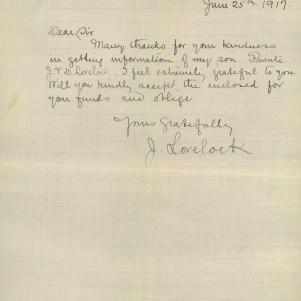 June 25th 1917.
Dear Sir
Many thanks for your kindness
in getting information of my son Private
J. V. D. Lovelock. I feel extremely grateful to you
Will you kindly accept the enclosed for
your funds and oblige
Yours Gratefully
J. Lovelock